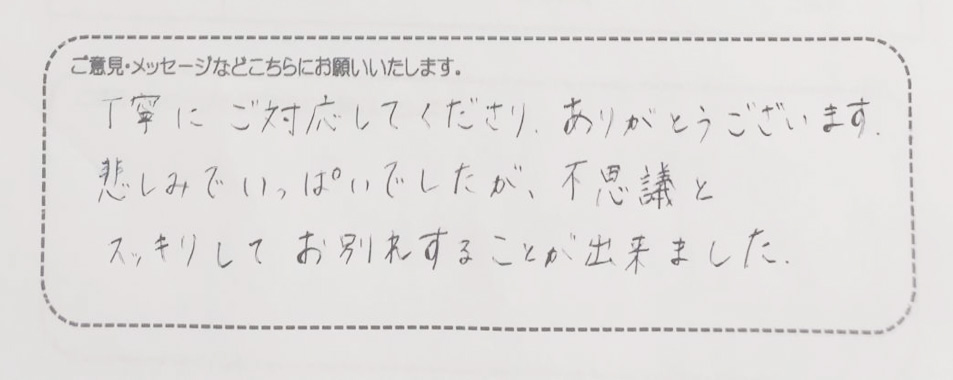 ご意見・メッセージなどこちらにお願いいたします。
丁寧にご対応してくださり、ありがとうございます。
悲しみでいっぱいでしたが、不思議と
スッキリしてお別れすることが出来ました。